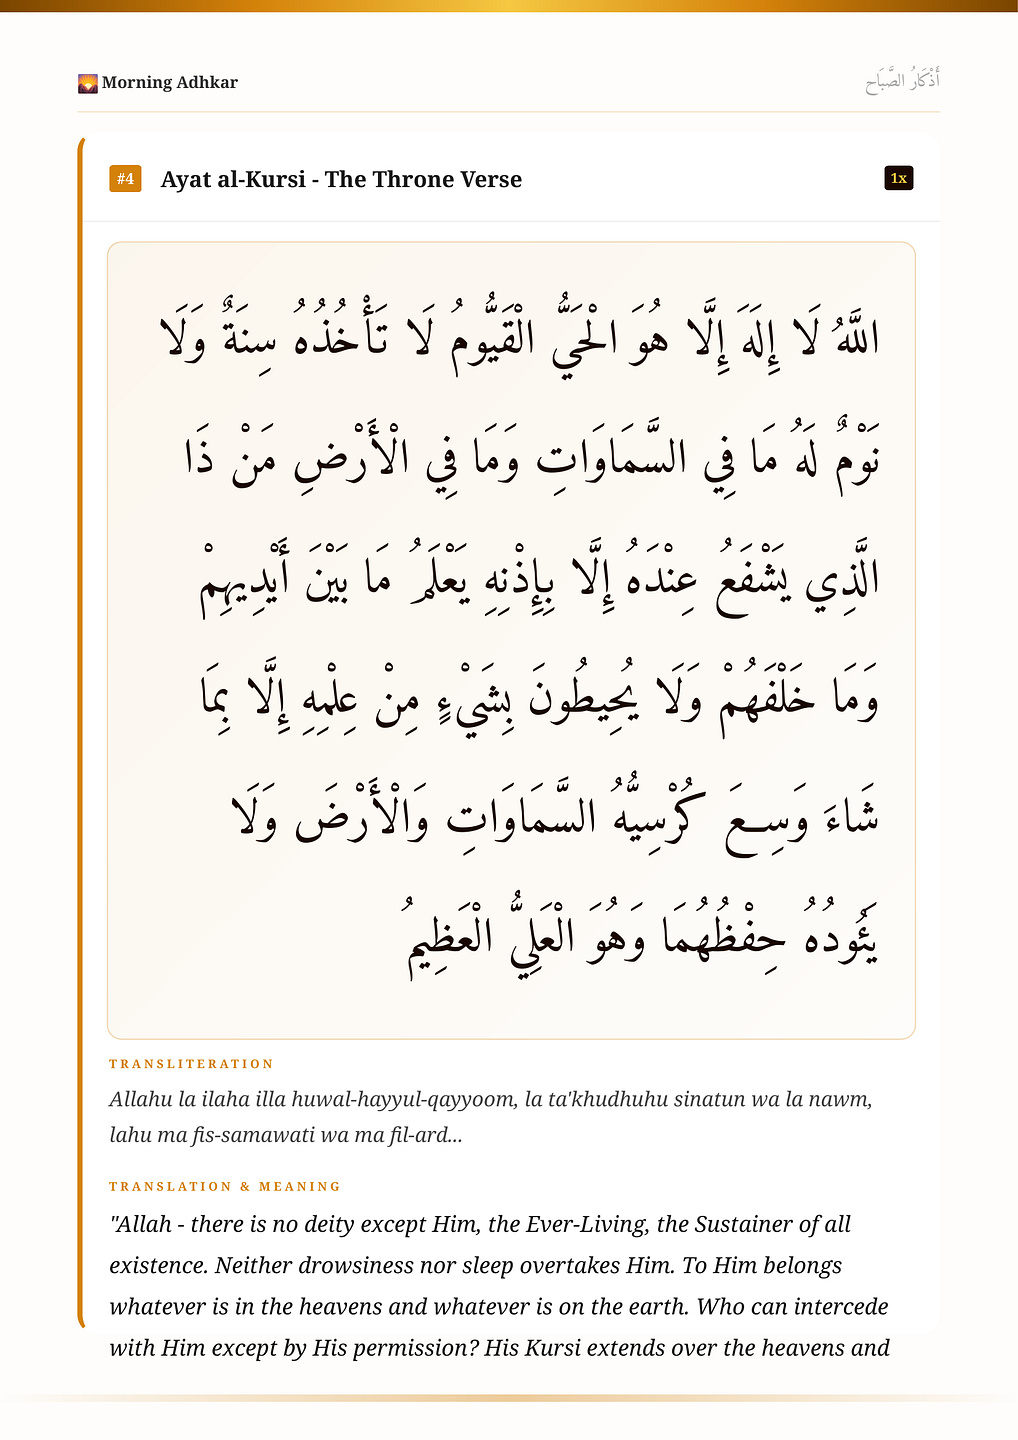 Morning Adhkar
أَذْكَارُ الصَّبَاح
#4
Ayat al-Kursi - The Throne Verse
1x
اللَّهُ لَا إِلَهَ إِلَّا هُوَ الْحَيُّ الْقَيُّومُ لَا تَأْخُذُهُ سِنَةٌ وَلَا
نَوْمٌ لَهُ مَا فِي السَّمَاوَاتِ وَمَا فِي الْأَرْضِ مَنْ ذَا
الَّذِي يَشْفَعُ عِنْدَهُ إِلَّا بِإِذْنِهِ يَعْلَمُ مَا بَيْنَ أَيْدِيهِمْ
وَمَا خَلْفَهُمْ وَلَا يُحِيطُونَ بِشَيْءٍ مِنْ عِلْمِهِ إِلَّا بِمَا
شَاءَ وَسِعَ كُرْسِيُّهُ السَّمَاوَاتِ وَالْأَرْضَ وَلَا
يَئُودُهُ حِفْظُهُمَا وَهُوَ الْعَلِيُّ الْعَظِيمُ
TRANSLITERATION
Allahu la ilaha illa huwal-hayyul-qayyoom, la ta'khudhuhu sinatun wa la nawm,
lahu ma fis-samawati wa ma fil-ard...
TRANSLATION & MEANING
"Allah - there is no deity except Him, the Ever-Living, the Sustainer of all
existence. Neither drowsiness nor sleep overtakes Him. To Him belongs
whatever is in the heavens and whatever is on the earth. Who can intercede
with Him except by His permission? His Kursi extends over the heavens and